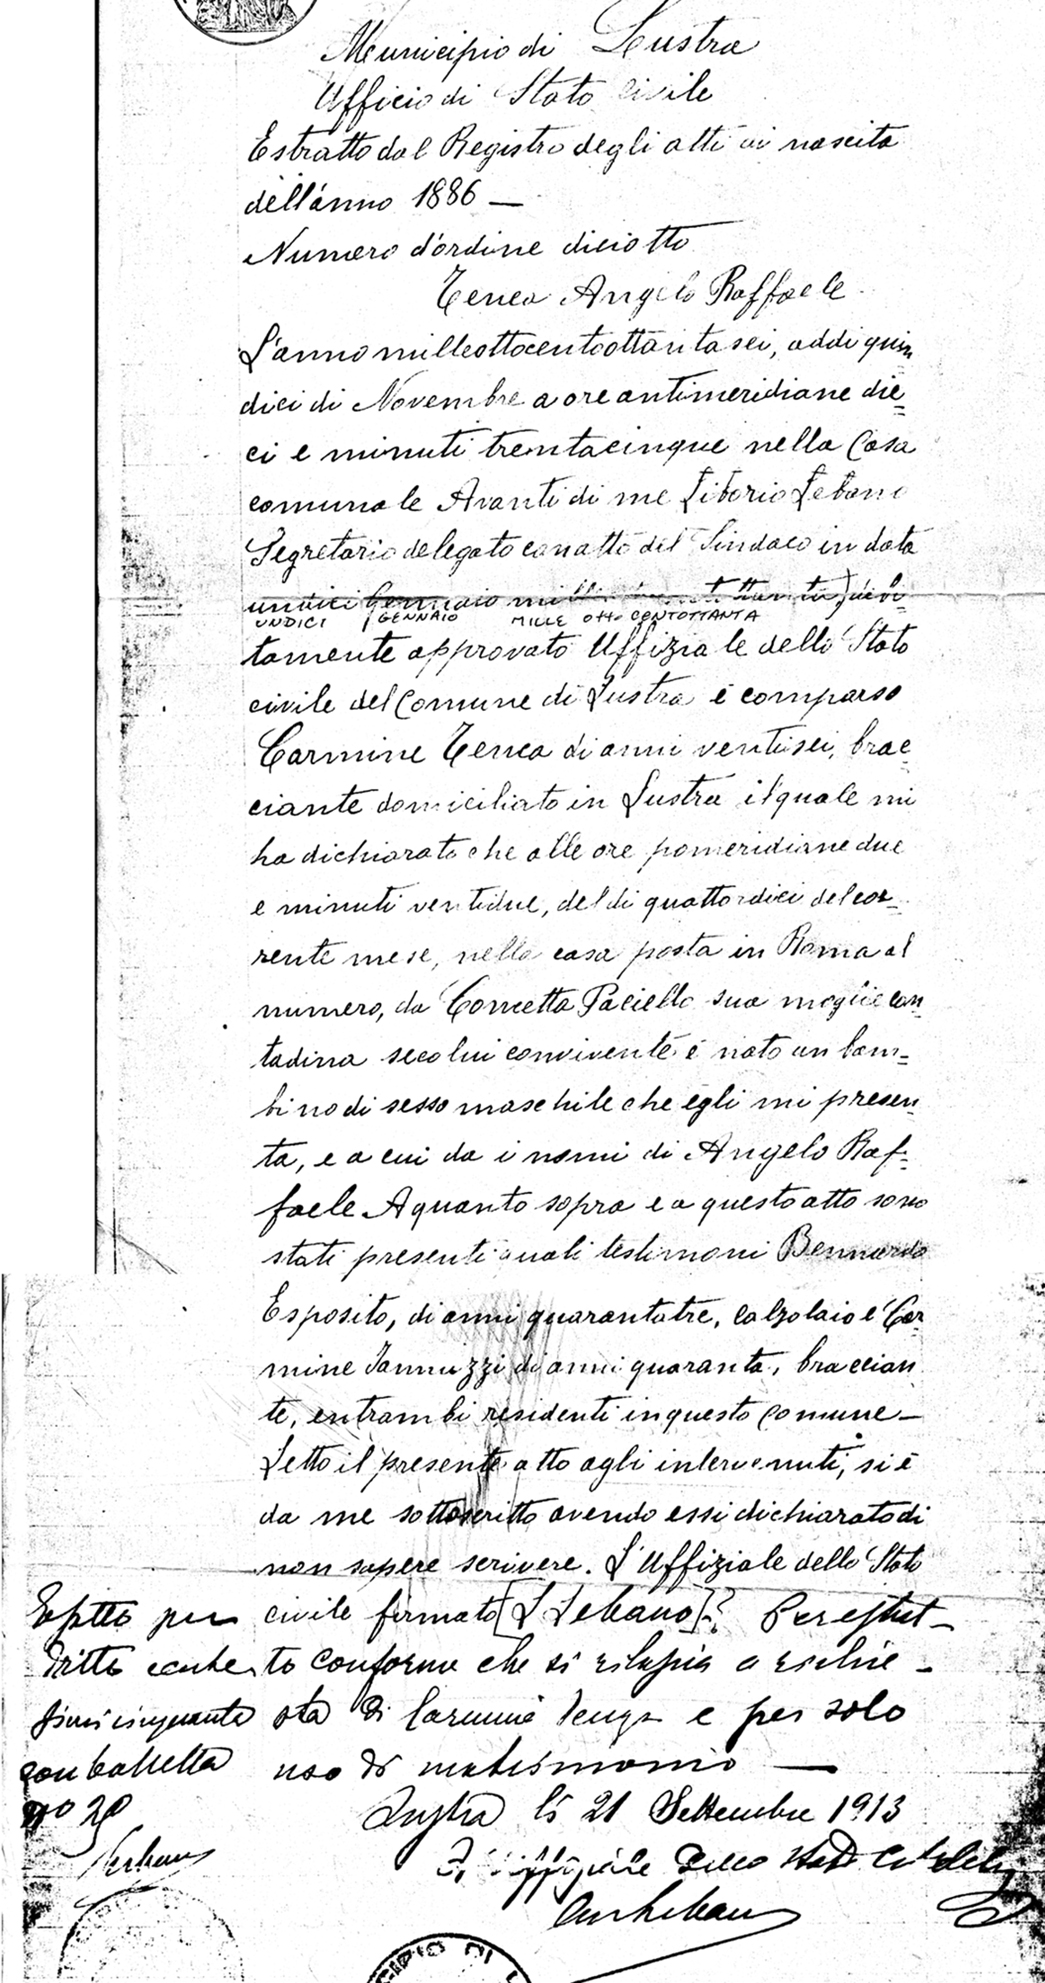 Municipio di Lustra
Ufficio di Stato civile
Estratto dal Registro degli atti di nascita
dell'anno 1886 —
Numero d'ordine diciotto
Tenca Angelo Raffaele
L'anno milleottocentoottantasei, addi quin
dici di Novembre a ore antimeridiane die=
ci e minuti trentacinque nella Casa
comunale Avanti di me Liborio Lebano
Segretario delegato con atto del Sindaco in data
undici Gennaio debi-
UNDICI GENNAIO MILLE OTTO CENTOTTANTA
tamente approvato Uffiziale dello Stato
civile del Comune di Lustra è comparso
Carmine Tenca di anni ventisei, brac=
ciante domiciliato in Lustra il quale mi
ha dichiarato che alle ore pomeridiane due
e minuti ventidue, del di quattordici del cor=
rente mese, nella casa posta in Roma al
numero, da Concetta Paciello sua moglie con
tadina seco lui convivente è nato un bam=
bino di sesso maschile che egli mi presen
ta, e a cui da i nomi di Angelo Raf=
faele A quanto sopra e a questo atto sono
stati presenti quali testimoni Bennardo
Esposito, di anni quarantatre, calzolaio e Car
mine Iannuzzi di anni quaranta, braccian
te, entrambi residenti in questo comune —
Letto il presente atto agli intervenuti, si è
da me sottoscritto avendo essi dichiarato di
non sapere scrivere. L'Uffiziale dello Stato
civile firmato [L Lebano]? Per
to conforme che si rilascia a richie-
sta di Carmine Tenga e per solo
uso di matrimonio —
per
Diritto
cinquanta
con
no 29
Lustra li 21 Settembre 1913
dello Stato
CIPIO DI L